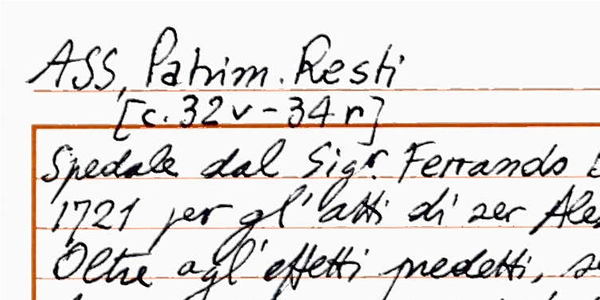 ASS, Patrim. Resti
[c. 32v - 34r]
Spedale dal Sigr. Ferrando
1721 per gl'atti di ser
Oltre agl'effetti predetti,